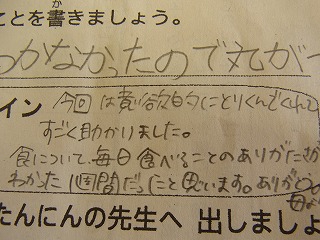 ことを書きましょう。
か
なかったので丸が
イン 今回は意欲的にとりくんでくれて
すごく助かりました。
食について、毎日食べることのありがたさが
わかった1週間だったと思います。ありがとう。
母より
たんにんの先生へ 出しましょ